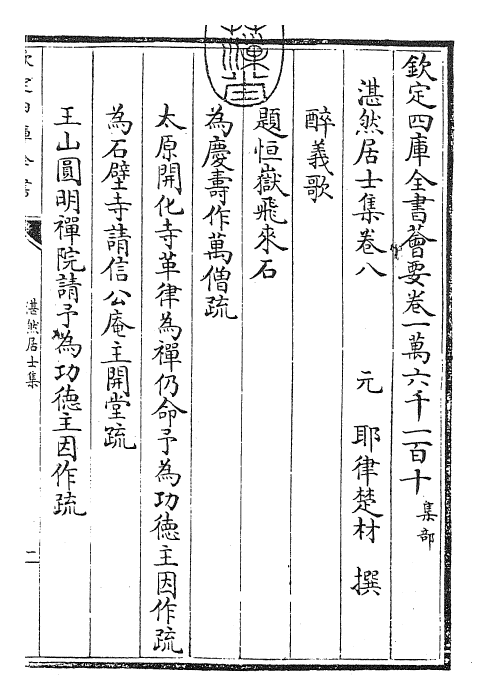 欽定四庫全書薈要卷一萬六千一百十 集部
湛然居士集卷八 元 耶律楚材 撰
醉義歌
題恒嶽飛來石
為慶壽作萬僧疏
太原開化寺革律為禪仍命予為功德主因作疏
為石壁寺請信公庵主開堂疏
王山圓明禪院請予為功德主因作疏
欽定四庫全書
湛然居士集